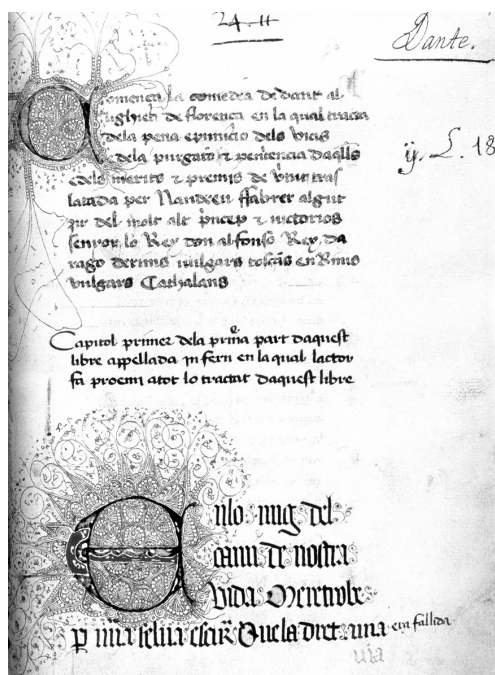 24. II
Dante.
ij. L. 18
Comença la comedia de dant al
lughieri de florença en la qual tracta
dela pena e punicio dels vicis
e dela purgato τ penitencia daqlls
e dels merits τ premis de virtut tras
latada per Nandreu ffabrer algut
zir del molt alt princep τ victorios
senyor lo Rey don alfonso Rey da
rago de rims vulgars toscans en Rims
vulgars Cathalans
Capitol primer dela prima part daquest
libre appellada infern en la qual lactor
fa prohemi a tot lo tractat daquest libre
En lo mig del
cami de nostra
vida Me retrobe
per una selva escura Que la dreta via era fallida
via